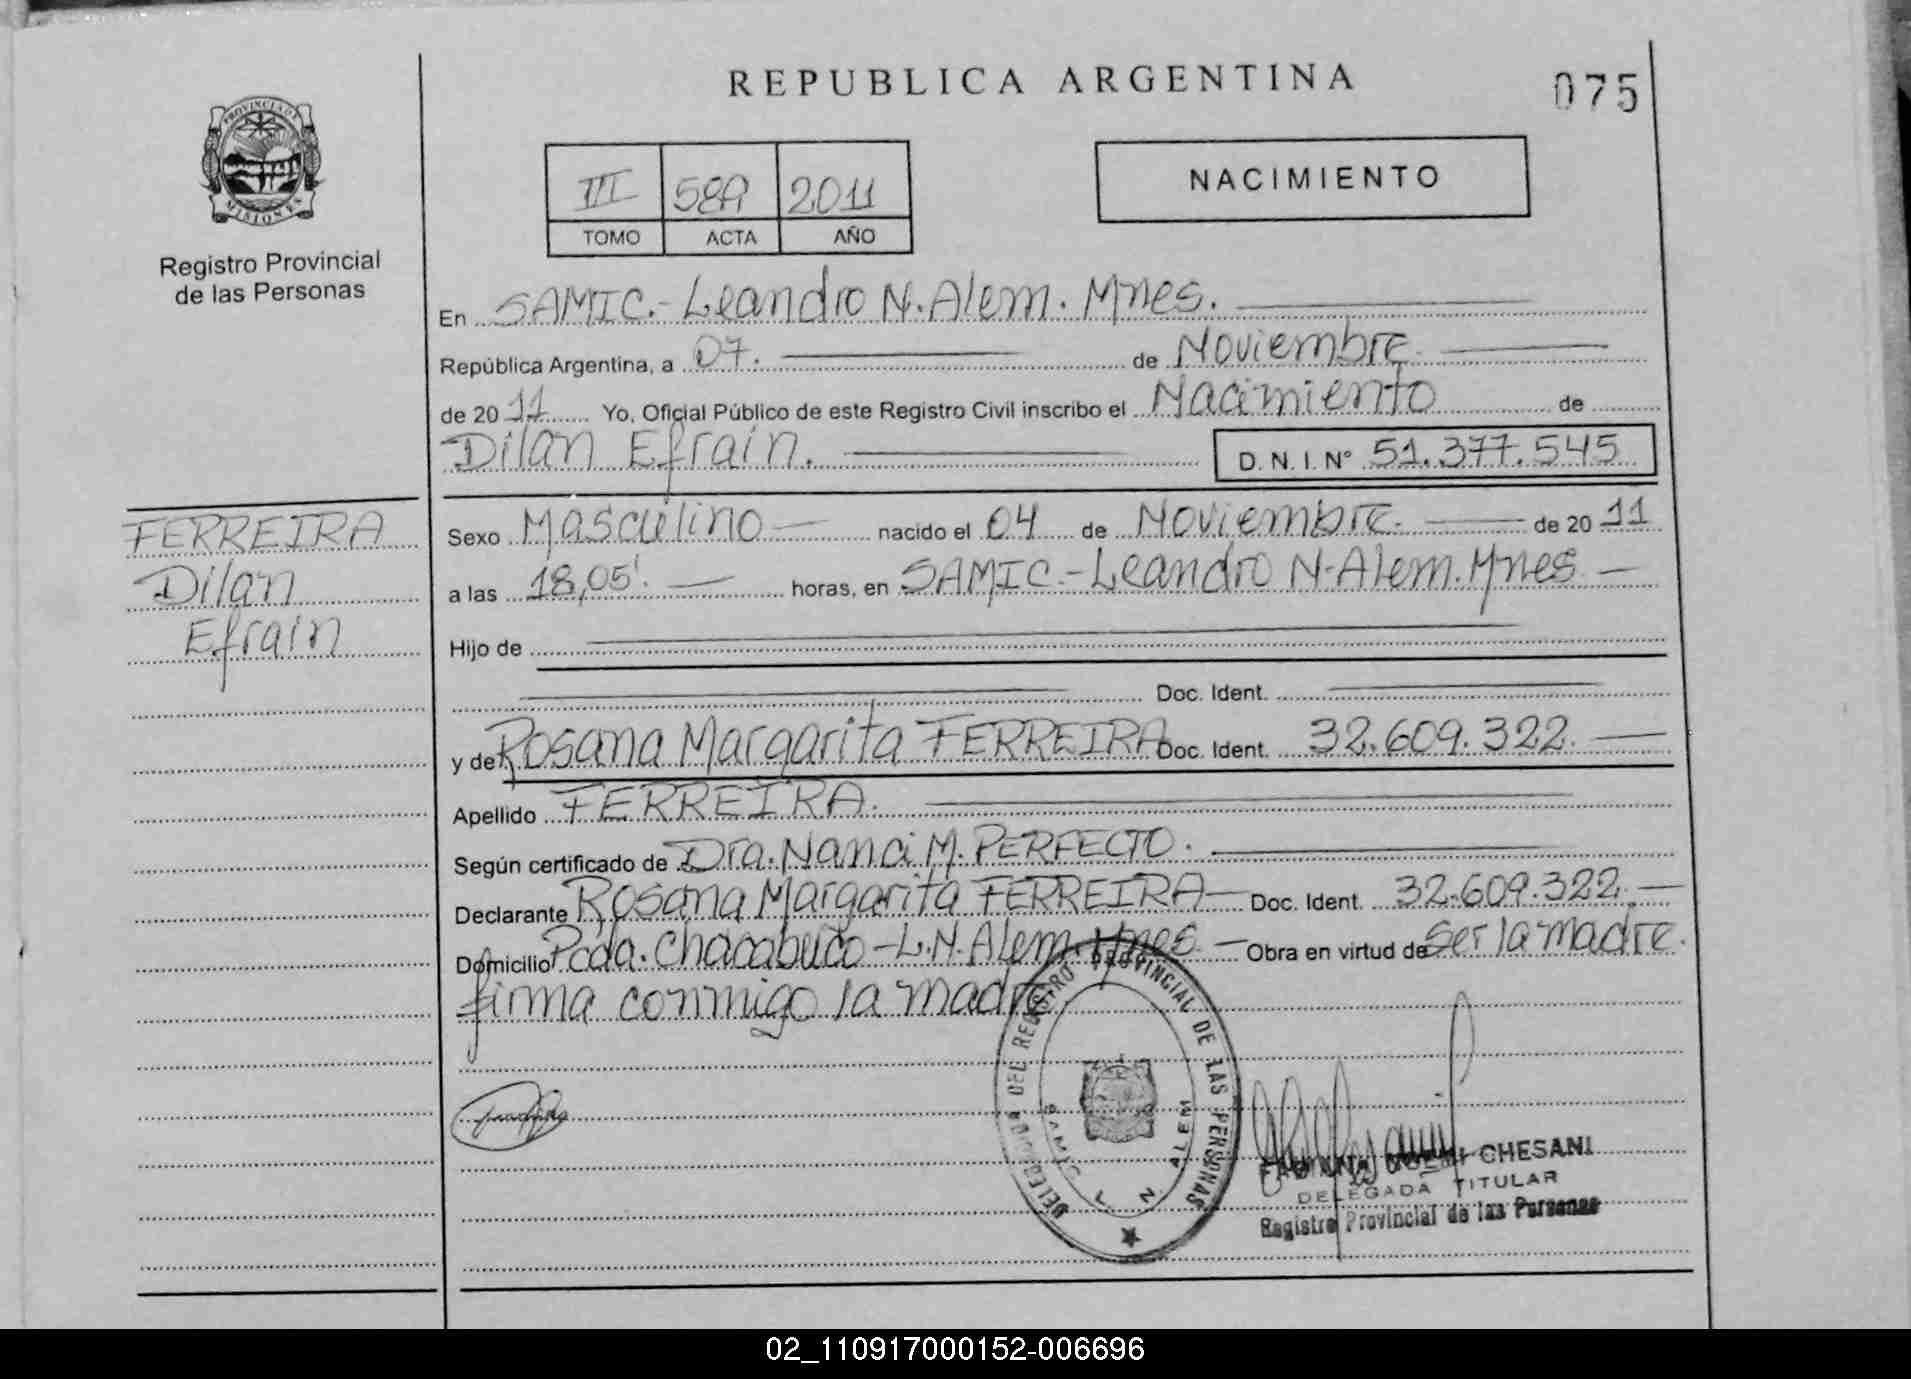 REPUBLICA ARGENTINA
075
PROVINCIA DE MISIONES
Registro Provincial
de las Personas
III 589 2011
TOMO ACTA AÑO
NACIMIENTO
En SAMIC.-Leandro N. Alem. Mnes.
República Argentina, a 07. de Noviembre
de 2011 Yo, Oficial Público de este Registro Civil inscribo el Nacimiento de
Dilan Efrain. D. N. I. N° 51.377.545
FERREIRA
Dilan
Efrain
Sexo Masculino nacido el 04 de Noviembre. de 2011
a las 18,05'. horas, en SAMIC.-Leandro N. Alem. Mnes
Hijo de
Doc. Ident.
y de Rosana Margarita FERREIRA Doc. Ident. 32.609.322.
Apellido FERREIRA.
Según certificado de Dra. Nanci M. PERFECTO.
Declarante Rosana Margarita FERREIRA Doc. Ident. 32.609.322.
Domicilio Pcda. Chacabuco-L.N.Alem.Mnes Obra en virtud de Ser la madre.
firma conmigo la madre
DELEGACION DEL REGISTRO PROVINCIAL DE LAS PERSONAS
SAMIC L. N. ALEM
CHESANI
DELEGADA TITULAR
Registro Provincial de las Personas
02_110917000152-006696